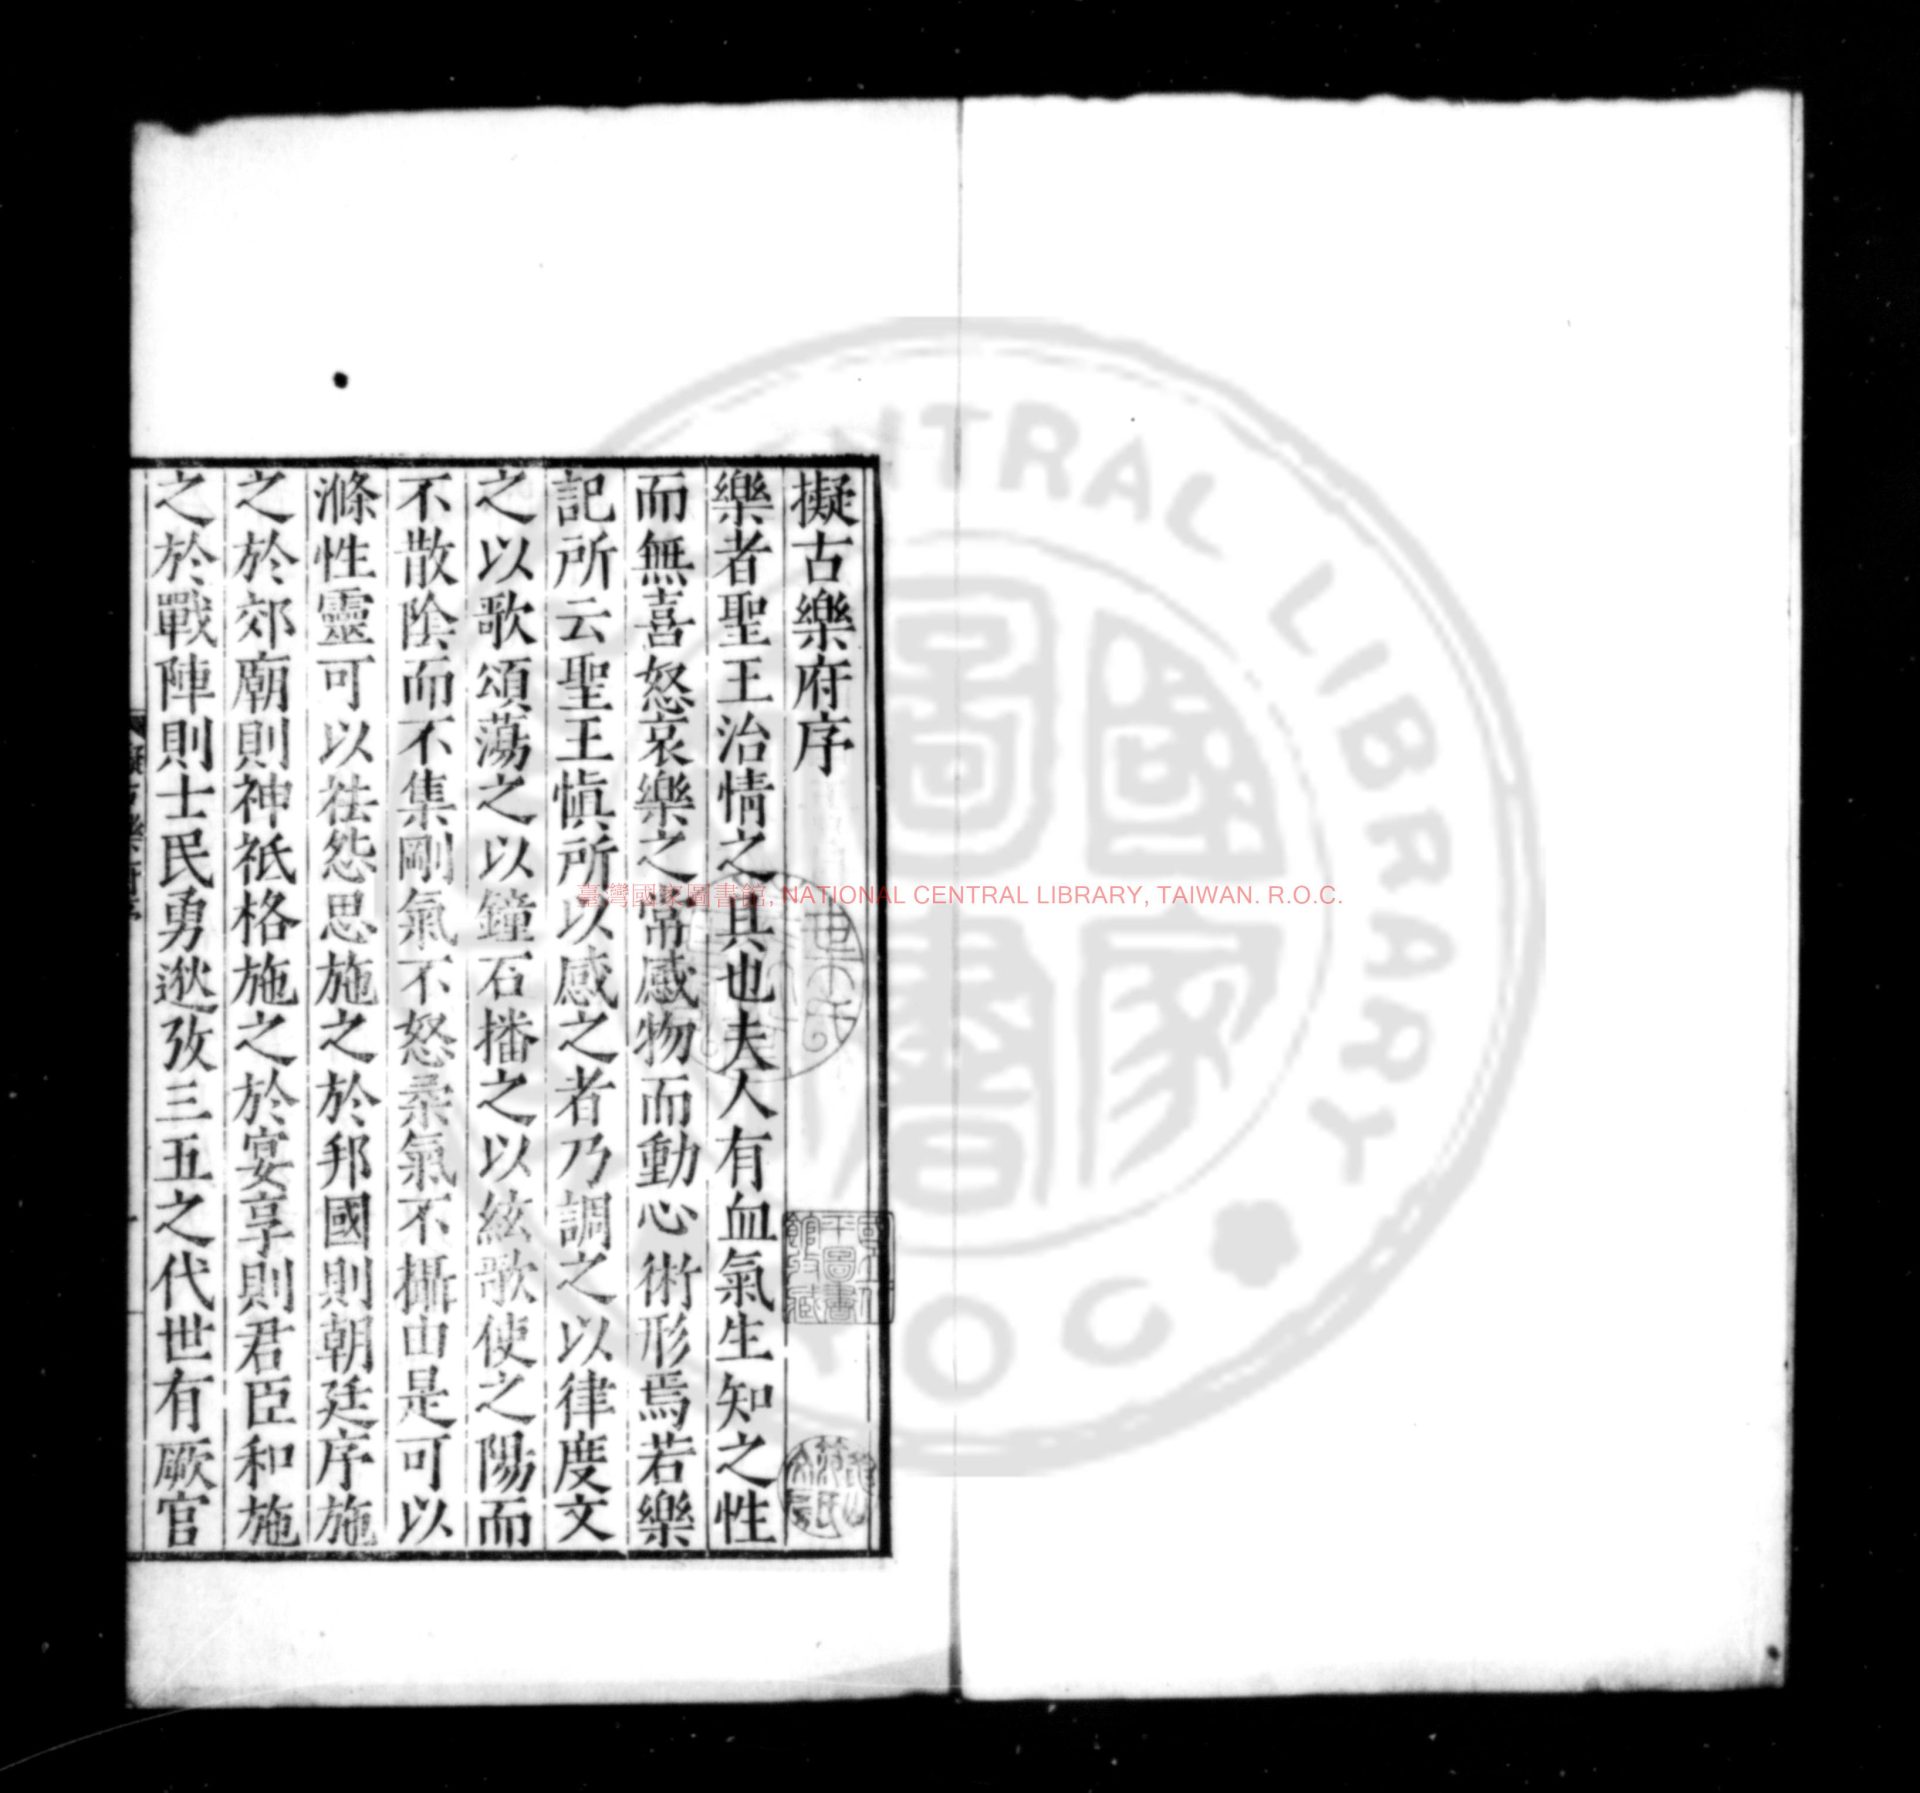 擬古樂府序
樂者聖王治情之具也夫人有血氣生知之性
而無喜怒哀樂之常感物而動心術形焉若樂
記所云聖王慎所以感之者乃調之以律度文
之以歌頌蕩之以鐘石播之以絃歌使之陽而
不散陰而不集剛氣不怒柔氣不攝由是可以
滌性靈可以祛怨思施之於邦國則朝廷序施
之於郊廟則神祇格施之於宴享則君臣和施
之於戰陣則士民勇逖攷三五之代世有厥官
臺灣國家圖書館, NATIONAL CENTRAL LIBRARY, TAIWAN. R.O.C.
CENTRAL LIBRARY
國家圖書